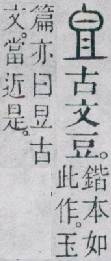 古文豆。
鍇本如
此作。玉
篇亦曰古
文。當近是。